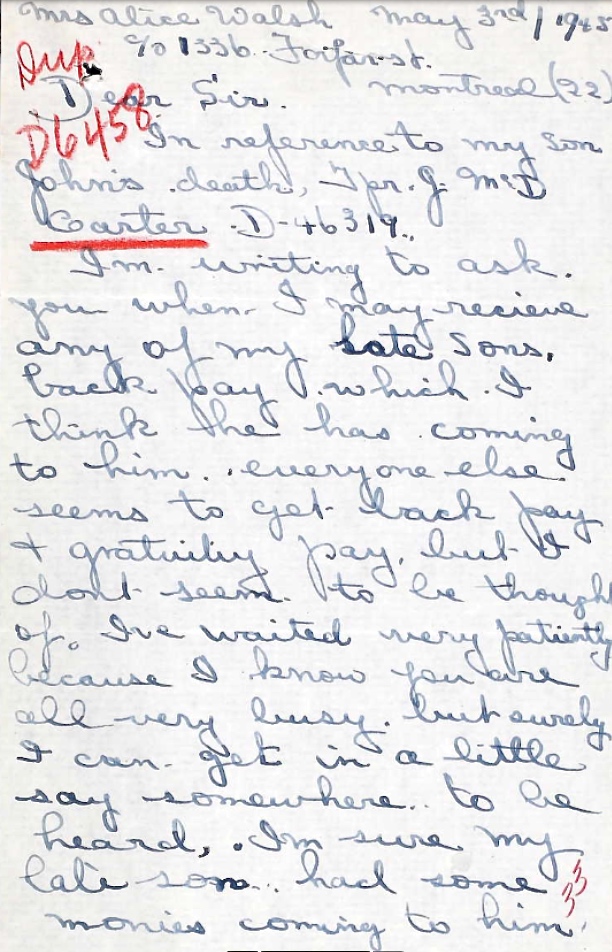 Mrs Alice Walsh May 3rd/1945
c/o 1336 Forfar st.
Montreal (22)
Dup
Dear Sir.
D6458
In reference to my son
John's death, Tpr. J. McD
Carter. D-46319.
I'm writing to ask.
you when I may recieve
any of my late sons.
back pay which I
think he has coming
to him. everyone else
seems to get back pay
+ gratuitiy pay, but I
dont seem to be though
of. I've waited very patiently
because I know you are
all very busy. but surely
I can get in a little
say somewhere.. to be
heard, . I'm sure my
late son.. had some
33
monies coming to him.